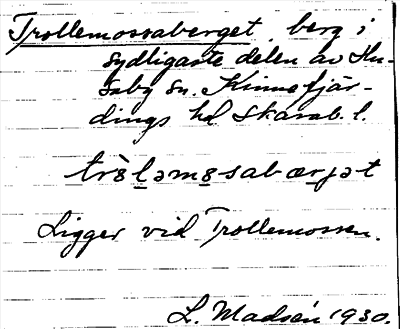 Trollemossaberget, berg i
sydligaste delen av Hu-
saby sn. Kinnefjär-
dings hd Skarab. l.
trò̤lǝmo̤sabærjǝt
Ligger vid Trollemossen.
L. Madsén 1930.